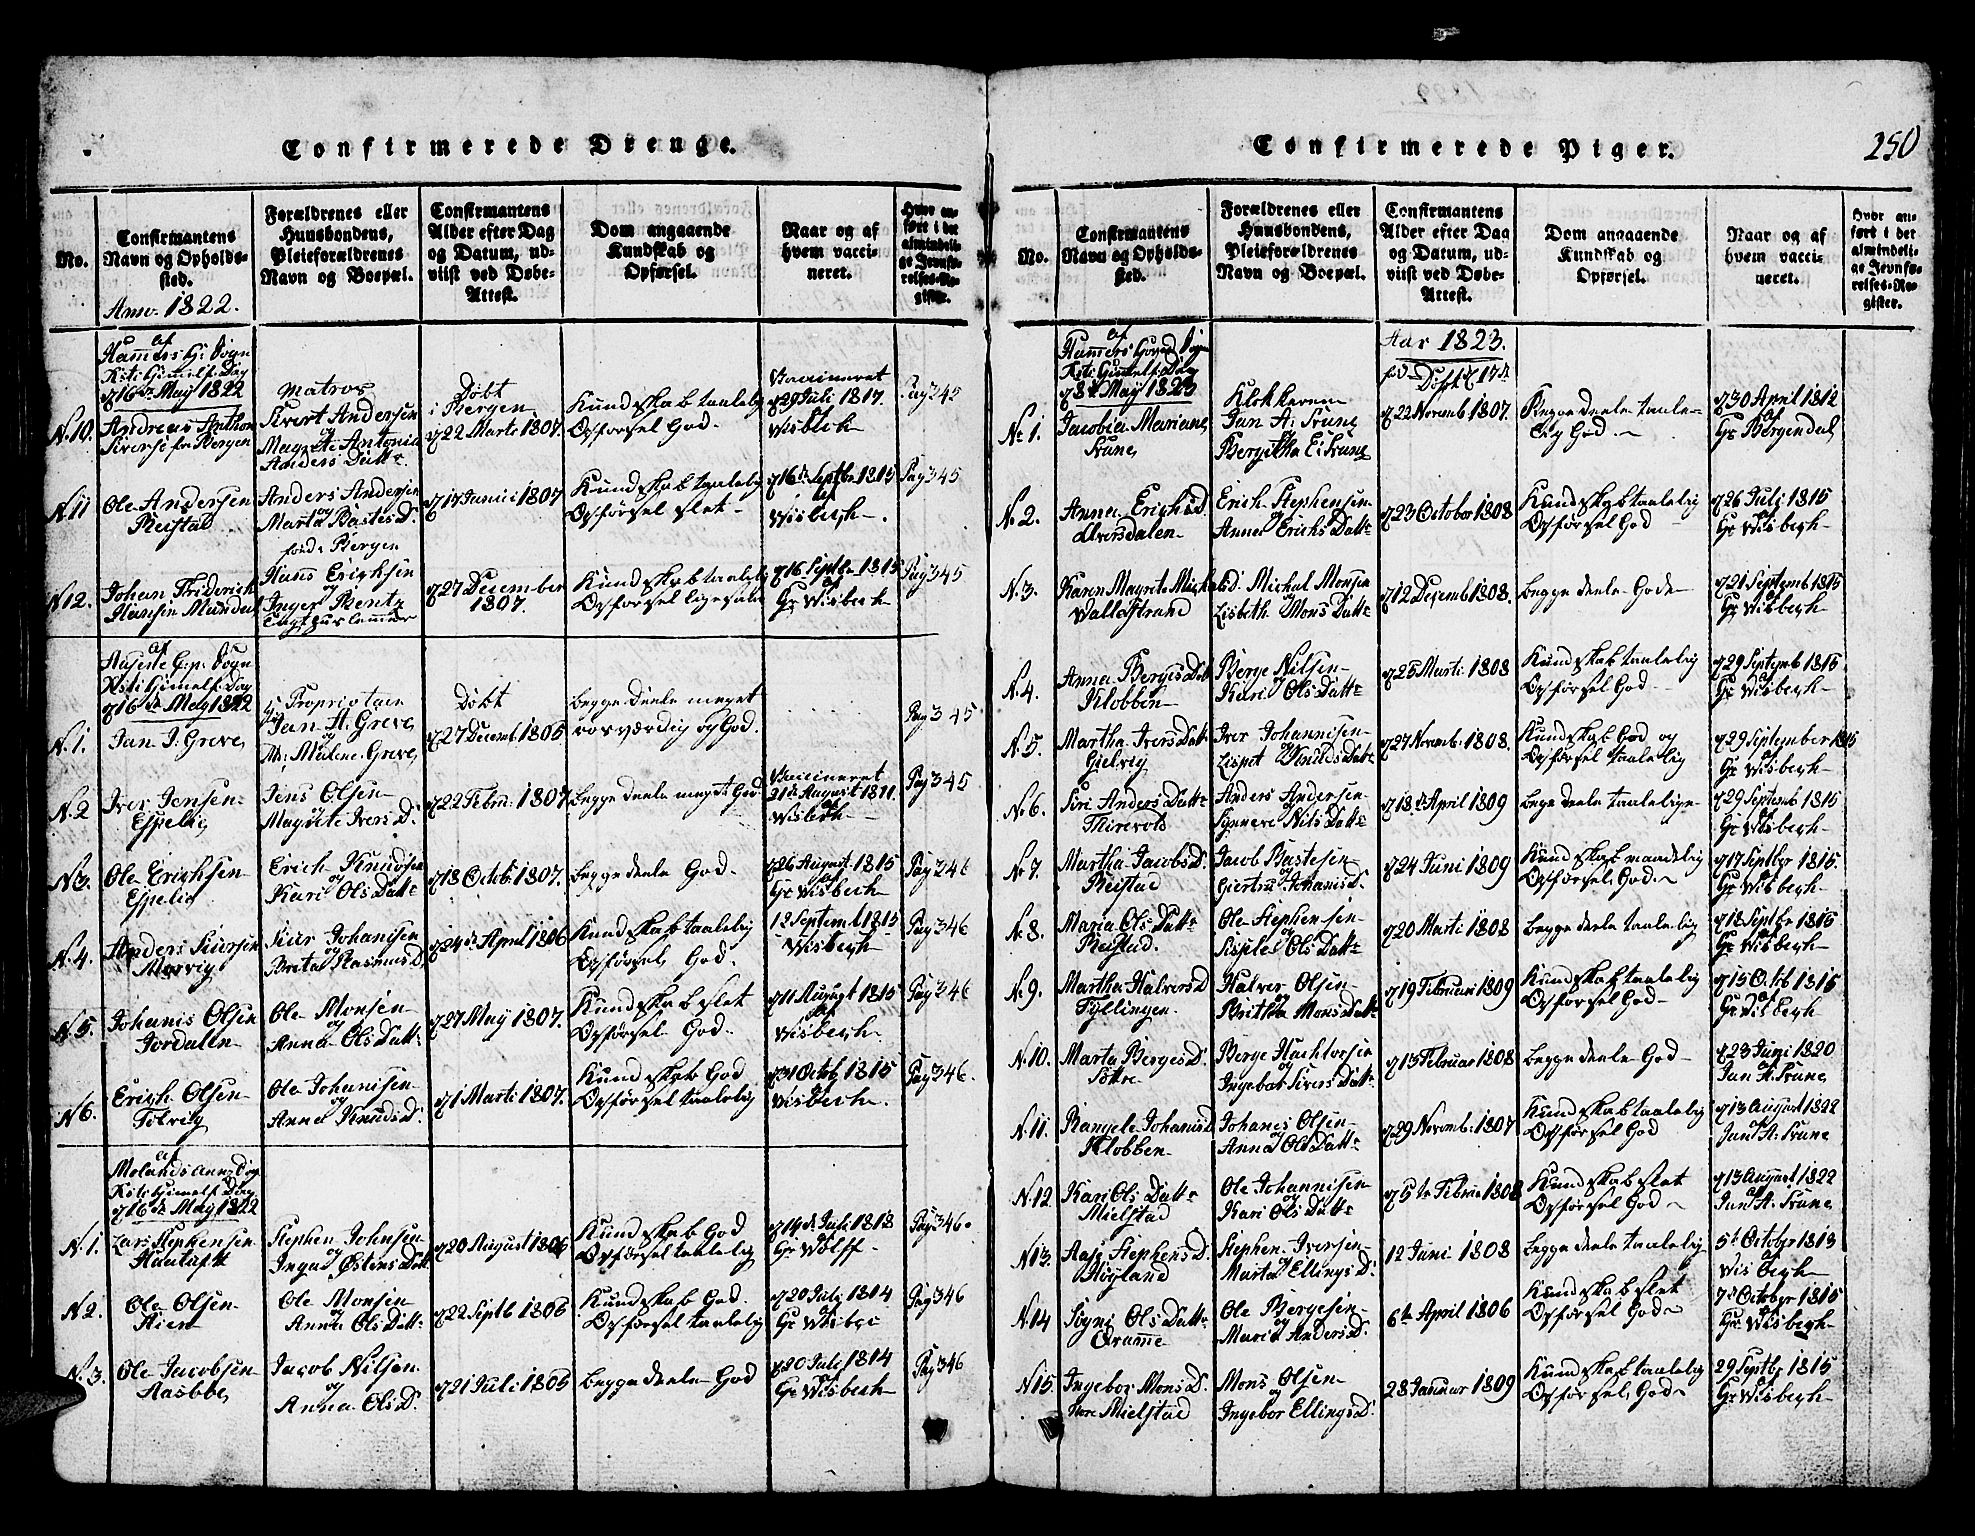 Confirmerede Drenge.
No.
Confirmantens
Navn og Opholds-
sted.
Anno. 1822.
Forældrenes eller
Huusbondens,
Pleieforældrenes
Navn og Boepæl.
Confirmantens
Alder efter Dag
og Datum, ud-
viist ved Døbe-
Attest.
Dom angaaende
Kundskab og
Opførsel.
Naar og af
hvem vacci-
neret.
Hvor an-
ført i det
almindeli-
ge Jevnfø-
relses-Re-
gister.
af
Hammers H: Sogn
16 de May 1822
N. 10.
Andreas Anthon
Siversen fra Bergen
Matros
Sivert Andersen
og
Magrete Antonia
Anders Datte
Døbt
i Bergen
22 Marti 1807.
Kundskab taalelig
Opførsel God.
Vaccineret
29 Juli 1817.
Wisbech
Pag 345
N. 11
Ole Andersen
Reistad
Anders Andersen
og
Marta Bastes D.
17 Junii 1807
Kundskab taalelig
Opførsel slet
16 de Septbr 1815
af
Wisbech.
Pag 345
N 12.
Johan Friderich
Hansen Mundal
født i Bergen
Hans Erichsen
og
Inger Bentz
27 December
1807.
Kundskab taalelig
Opførsel ligesaa
16 Septbr 1815
af
Hr Wisbech
Pag 345
af
Sogn
16 de May 1822
N. 1.
Jan J. Greve
Proprietair
Jan A. Greve
og
M: Malene Greve
Døbt
27 Decemb. 1806
Begge Deele meget
rosværdig og God.
Pag 345
N. 2
Iver Jensen
Espelid
Jens Olsen
og
Magrete Ivers D.
22 Febru: 1807
Begge deele meget God
Vaccineret
21 de August 1811.
af
Wisbech
Pag 345
N 3.
Ole Erichsen
Espelid
Erich Knudsen
og
Kari Ols Datte
18 Octob. 1807.
Begge deele God.
26 August. 1815
af
Hr Wisbech
Pag 246
N. 4.
Anders Siursen
Morvig
Siur Johanisen
og
Brita Rasmus D.
24 de April 1806
Kundskab taalelig
Opførsel God.
12 Septemb 1815
af
Wisbech
Pag 346
N. 5.
Johanis Olsen
Jordalen
Ole Monsen
og
Anna Ols Datte
27 May 1807.
Kundskab slet
Opførsel God.
11 August 1815
af
Wisbech.
Pag 346
N 6.
Erich Olsen
Totvig
Ole Johanisen
og
Anna Knuds D.
1 Marti 1807.
Kundskab God
Opførsel taalelig
31 Octob 1815
af
Wisbech.
Pag 346.
af
Molands Annex Sogn
16 de May 1822
N. 1.
Lars Stephensen
Hautuft
Stephen Johnsen
og
Ingad Østens Datt
20 August 1806
Kundskab God
Opførsel taalelig
14 de Juli 1818
Hr Wolff
Pag 346.
N 2.
Ole Olsen
Ole Monsen
og
Anna Ols Datte
22 Septb 1806
Kundskab God.
Opførsel taalelig
20 Juli 1814
af
Hr Wisbec
Pag 346
N. 3.
Ole Jacobsen
Aasebbe
Jacob Nilsen
og
Anna Ols D.
21 Juli 1806
Begge deele God
20 Juli 1814
af
Hr Wisbech
Pag 346
Confirmerede Piger.
250
No.
Confirmantens
Navn og Opholds-
sted.
Forældrenes eller
Huusbondens,
Pleieforældrenes
Navn og Boepæl.
Confirmantens
Alder efter Dag
og Datum, ud-
viist ved Døbe-
Attest.
Dom angaaende
Kundskab og
Opførsel.
Naar og af
hvem vacci-
neret.
Hvor an-
ført i det
almindeli-
ge Jevnfø-
relses-Re-
gister.
Aar 1823.
af
Hammers Hoved Sogn
8 de May 1823
N: 1.
Jacobia Mariane
Irune
Klokkeren
Jan A: Irune
Bergitha E: Irune
Døbt 17 de
22 Novemb 1807.
Begge deele taale-
lig God.
30 April 1812
af
Hr Bergendal
N. 2.
Anna Erichs D.
Ulversdalen
Erich Stephensen
og
Anna Erichs Datte
23 October 1808
Kundskab taalelig
Opførsel God
26 Juli 1815
af
Hr Wisbech
N. 3.
Karen Magrete Michels D.
Wallestrand
Michel Monsen
Lisbeth Mons Datte
12 Decemb 1808.
Begge deele Gode
21 Septemb 1815
af
Hr Wisbech
N. 4.
Anna Berges Dat
Klobben
Berge Nilsen
og
Kari Ols Datte
25 Marti. 1808
Kundskab taalelig
Opførsel God
29 Septemb 1815
af
Hr Wisbech
N. 5.
Martha Ivers Datt
Gielvig
Iver Johannisen
og
Lispet Knuds Datte
27 Novemb: 1808.
Kundskab God og
Opførsel taalelig
29 September 1815
af
Hr Wisbech
N. 6.
Siri Anders Datte
Anders Andersen
og
Synneve Nils Datte
18 de April 1809
Begge deele taalelige
29 Septemb 1815
af
Hr Wisbech
N. 7.
Martha Jacobs D.
Reistad
Jacob Bastesen
og
Giertru Johanis D.
24 Juni 1809
Kundskab maadelig
Opførsel God
17 Septbr 1815.
af
Hr Wisbech
N. 8.
Maria Ols Datte
Reistad.
Ole Stephensen
og
Ols Datte
20 Marti 1808
Begge deele taalelig
18 Septbr 1815
af
Hr Wisbech
N. 9.
Martha Halvers D
Tyllingen.
Halver Olsen
og
Britha Mons Datte
19 Februari 1809
Kundskab taalelig
Opførsel God
15 Octb 1815
af
Hr Wisbech
N. 10.
Marta Berges D.
Totre
Berge Hachtorsen
og
Ingebor Sivers Datte
13 Februar 1808
Begge deele God
23 Juni 1820
af
Jan A. Irune
N. 11.
Rangele Johanis D.
Klobben
Johanes Olsen
og
Anna Ols Datte
29 Novemb: 1807
Kundskab taalelig
Opførsel God
13 August 1822
af
Jan A: Irune
N. 12.
Kari Ols Datte
Mielstad
Ole Johannisen
og
Kari Ols Datte
5 te Febru 1808
Kundskab slet
Opførsel God
13 August 1822
af
Jan A. Irune
N. 13.
Aase Stephens D.
Høyland
Stephen Iversen
og
Marta Ellings D.
12 Juni 1808
Begge deele taalelig
5 t October 1813
Wisbech
N. 14
Sogni Ols Datte
Qvamme
Ole Bergesen
og
Maria Anders D.
6 te April 1806
Kundskab slet
Opførsel God
7 d October 1815
af
Hr. Wisbech
N. 15.
Ingebor Mons D.
Mielstad
Mons Olsen
og
Ingebor Ellings D.
28 Januar 1809
Kundskab taalelig
Opførsel God
29 Septbr 1815
af
Hr Wisbech